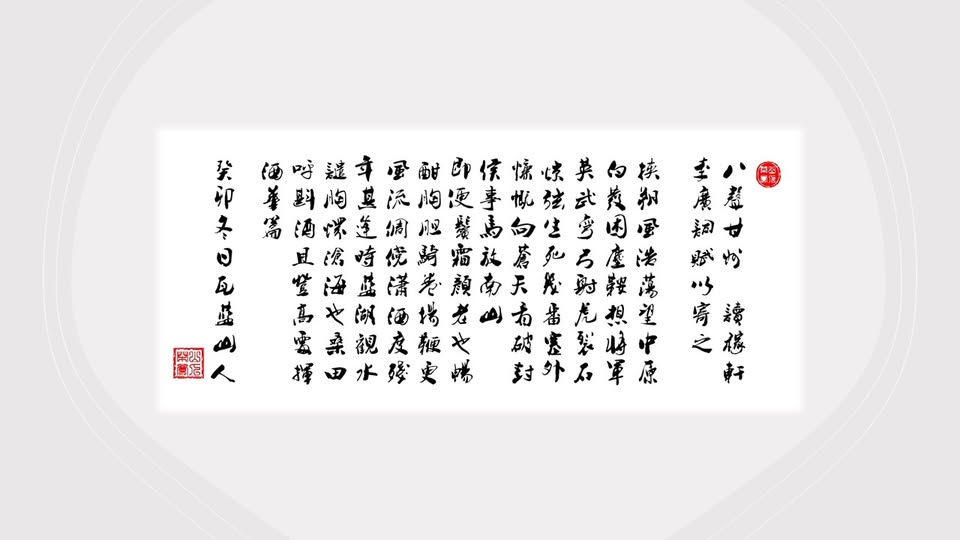 八聲甘州 讀稼軒
李廣詞賦以寄之
挾朔風浩蕩望中原
白發困塵鞍想將軍
英武彎弓射虎裂石
弦生死幾番塞外
慷慨向蒼天看破封
侯事馬放南山
即便鬢霜顏老也暢
酣胸膽騎卷揚鞭更
風流倜傥瀟洒度殘
年其途時藍湖觀水
譴胸懷滄海也桑田
呼斟酒且登高處揮
洒華篇
癸卯冬日瓦藍山人